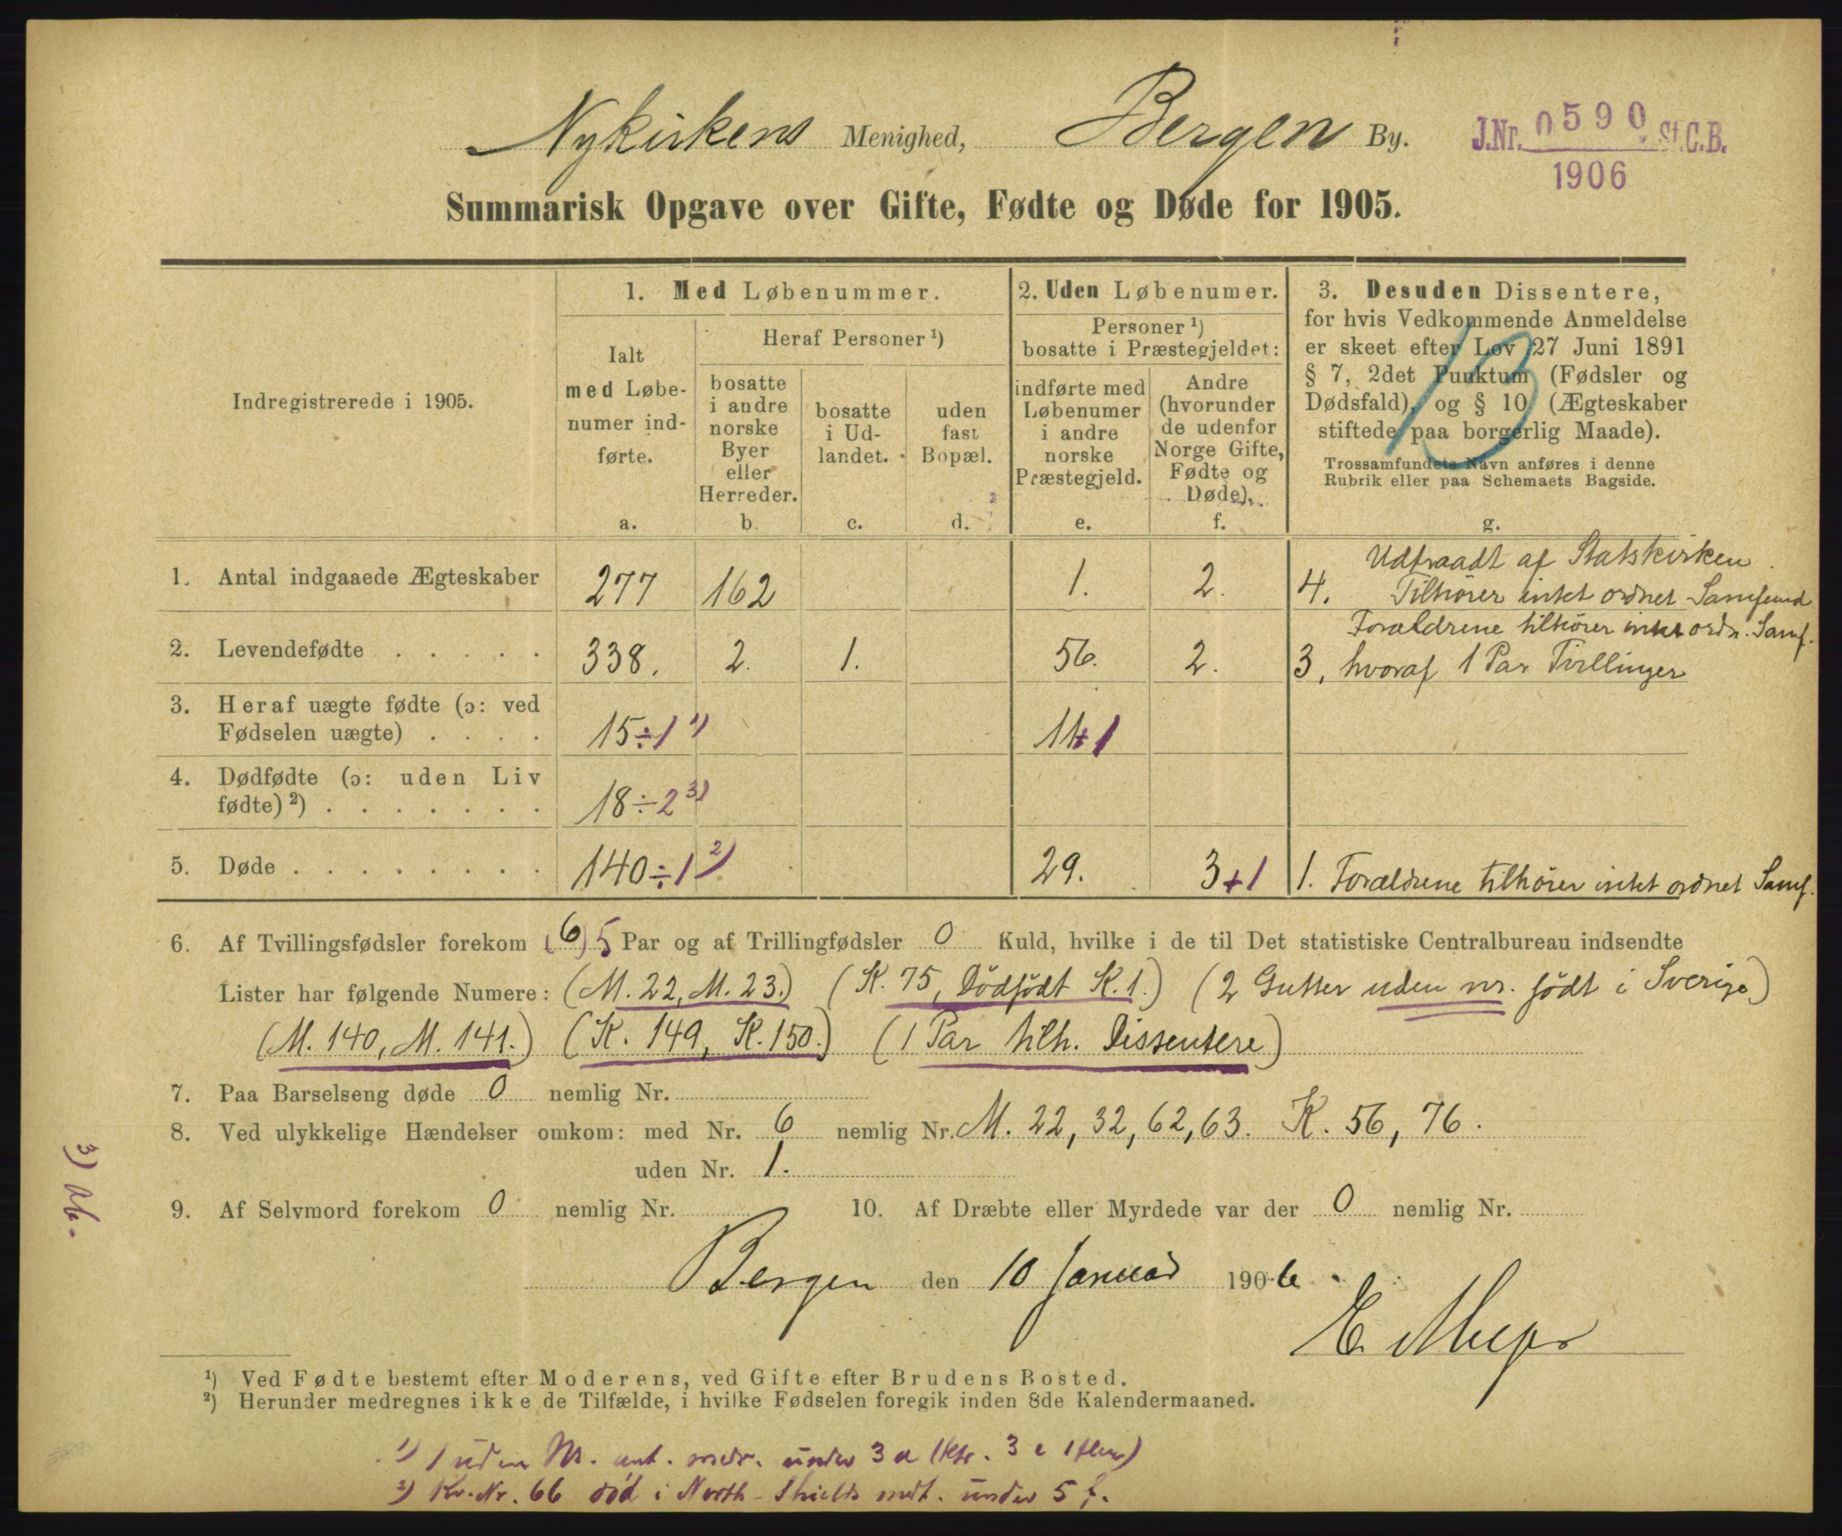 Nykirkens Menighed, Bergen By.
J.Nr. 0590 St.C.B.
1906
Summarisk Opgave over Gifte, Fødte og Døde for 1905.
Indregistrerede i 1905.
1. Med Løbenummer.
Ialt
med Løbe-
numer ind-
førte.
a.
Heraf Personer ¹)
bosatte
i andre
norske
Byer
eller
Herreder.
b.
bosatte
i Ud-
landet.
c.
uden
fast
Bopæl.
d.
2. Uden Løbenumer.
Personer ¹)
bosatte i Præstegjeldet:
indførte med
Løbenumer
i andre
norske
Præstegjeld.
e.
Andre
(hvorunder
de udenfor
Norge Gifte,
Fødte og
Døde).
f.
3. Desuden Dissentere,
for hvis Vedkommende Anmeldelse
er skeet efter Lov 27 Juni 1891
§ 7, 2det Punktum (Fødsler og
Dødsfald), og § 10 (Ægteskaber
stiftede paa borgerlig Maade).
Trossamfundets Navn anføres i denne
Rubrik eller paa Schemaets Bagside.
g.
13
Udtraadt af Statskirken.
1. Antal indgaaede Ægteskaber 277 162 1. 2. 4. Tilhører intet ordnet Samfund
Forældrene tilhører intet ordn. Samf.
2. Levendefødte . . . . . 338. 2. 1. 56. 2. 3, hvoraf 1 Par Tvillinger
3. Heraf uægte fødte (ɔ: ved
Fødselen uægte) . . . . 15÷1 ¹) 11+1
4. Dødfødte (ɔ: uden Liv
fødte) ²) . . . . . . . 18÷2 ³)
5. Døde . . . . . . . . 140÷1 ²) 29. 3+1 1. Forældrene tilhører intet ordnet Samf.
6. Af Tvillingsfødsler forekom (6) 5 Par og af Trillingfødsler 0 Kuld, hvilke i de til Det statistiske Centralbureau indsendte
Lister har følgende Numere: (M. 22, M. 23.) (K. 75, Dödfödt K. 1.) (2 Gutter uden nr. födt i Sverige)
(M. 140, M. 141.) (K. 149, K. 150.) (1 Par tilh. Dissentere)
7. Paa Barselseng døde 0 nemlig Nr.
8. Ved ulykkelige Hændelser omkom: med Nr. 6 nemlig Nr. M. 22, 32, 62, 63. K. 56, 76.
uden Nr. 1.
9. Af Selvmord forekom 0 nemlig Nr. 10. Af Dræbte eller Myrdede var der 0 nemlig Nr.
Bergen den 10 Januar 1906.
E.
¹) Ved Fødte bestemt efter Moderens, ved Gifte efter Brudens Bosted.
²) Herunder medregnes ikke de Tilfælde, i hvilke Fødselen foregik inden 8de Kalendermaaned.
¹) 1 uden Nr. ant. under 3 a
²) Kv. Nr. 66 död i North Shields medt. under 5 f.
3) Ab.